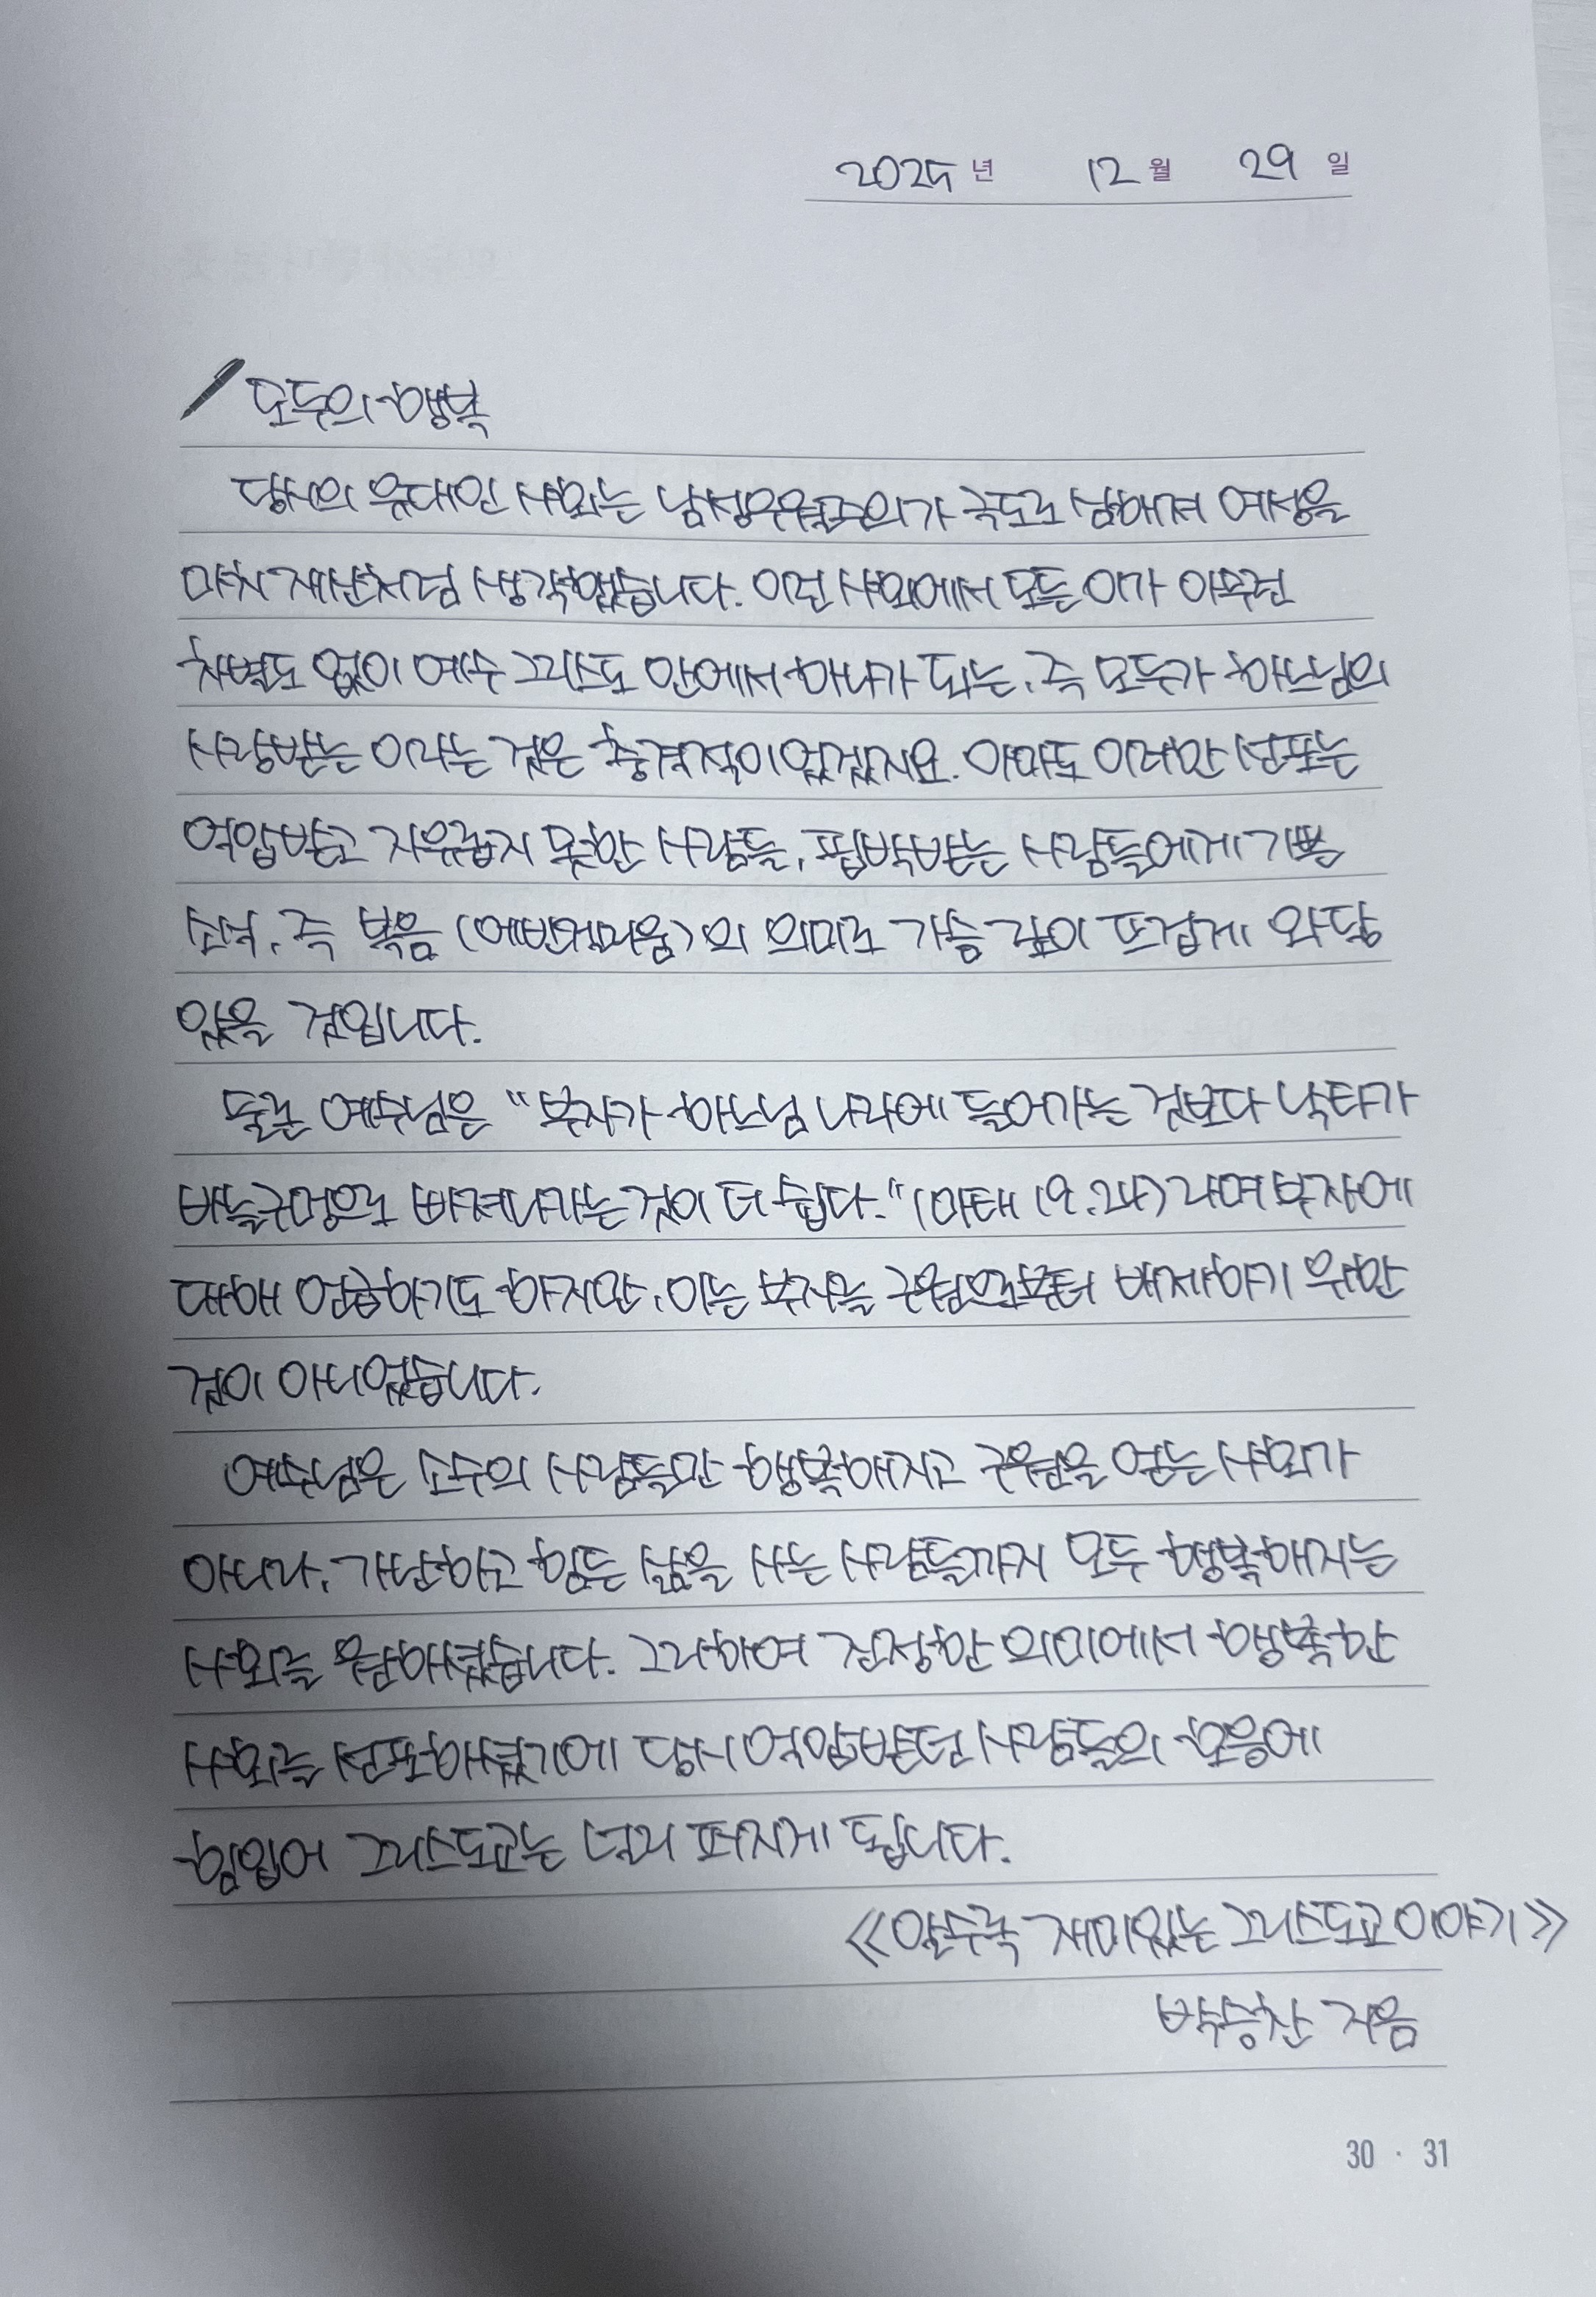 2025년 12월 29일
모두의 행복
당시의 유대인 사회는 남성우월주의가 극도로 심해서 여성을
마치 재산처럼 생각했습니다. 이런 사회에서 모든 이가 아무런
차별도 없이 예수 그리스도 안에서 하나가 되는, 즉 모두가 하느님의
사랑받는 이라는 것은 충격적이었겠지요. 아마도 이러한 선포는
억압받고 자유롭지 못한 사람들, 핍박받는 사람들에게 기쁜
소식, 즉 복음(에반겔리움)의 의미로 가슴 깊이 뜨겁게 와 닿
았을 것입니다.
물론 예수님은 "부자가 하느님 나라에 들어가는 것보다 낙타가
바늘구멍으로 빠져나가는 것이 더 쉽다."(마태 19.24)라며 부자에
대해 언급하기도 하지만, 이는 부자를 구원으로부터 배제하기 위한
것이 아니었습니다.
예수님은 소수의 사람들만 행복해지고 구원을 얻는 사회가
아니라, 가난하고 힘든 삶을 사는 사람들까지 모두 행복해지는
사회를 원하셨습니다. 그리하여 진정한 의미에서 행복한
사회를 선포하셨기에 당시 억압받던 사람들의 호응에
힘입어 그리스도교는 널리 퍼지게 됩니다.
《알수록 재미있는 그리스도교 이야기》
박승찬 지음
30 · 31